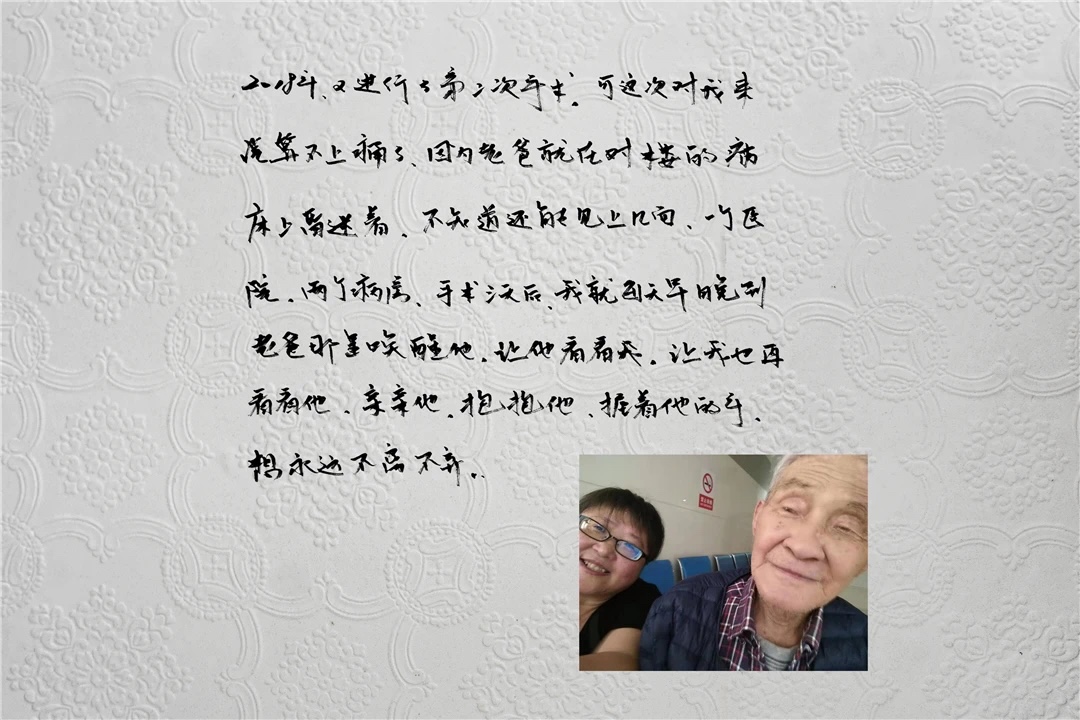 2018年、又进行了第二次手术。可这次对我来
说算不上痛了、因为老爸就在对楼的病
床上昏迷着、不知道还能见上几面、一个医
院、两个病房、手术三天后、我就每天早晚到
老爸那里唤醒他、让他看看我。让我也再
看看他、亲亲他、抱抱他、握着他的手、
想永远不离不弃..